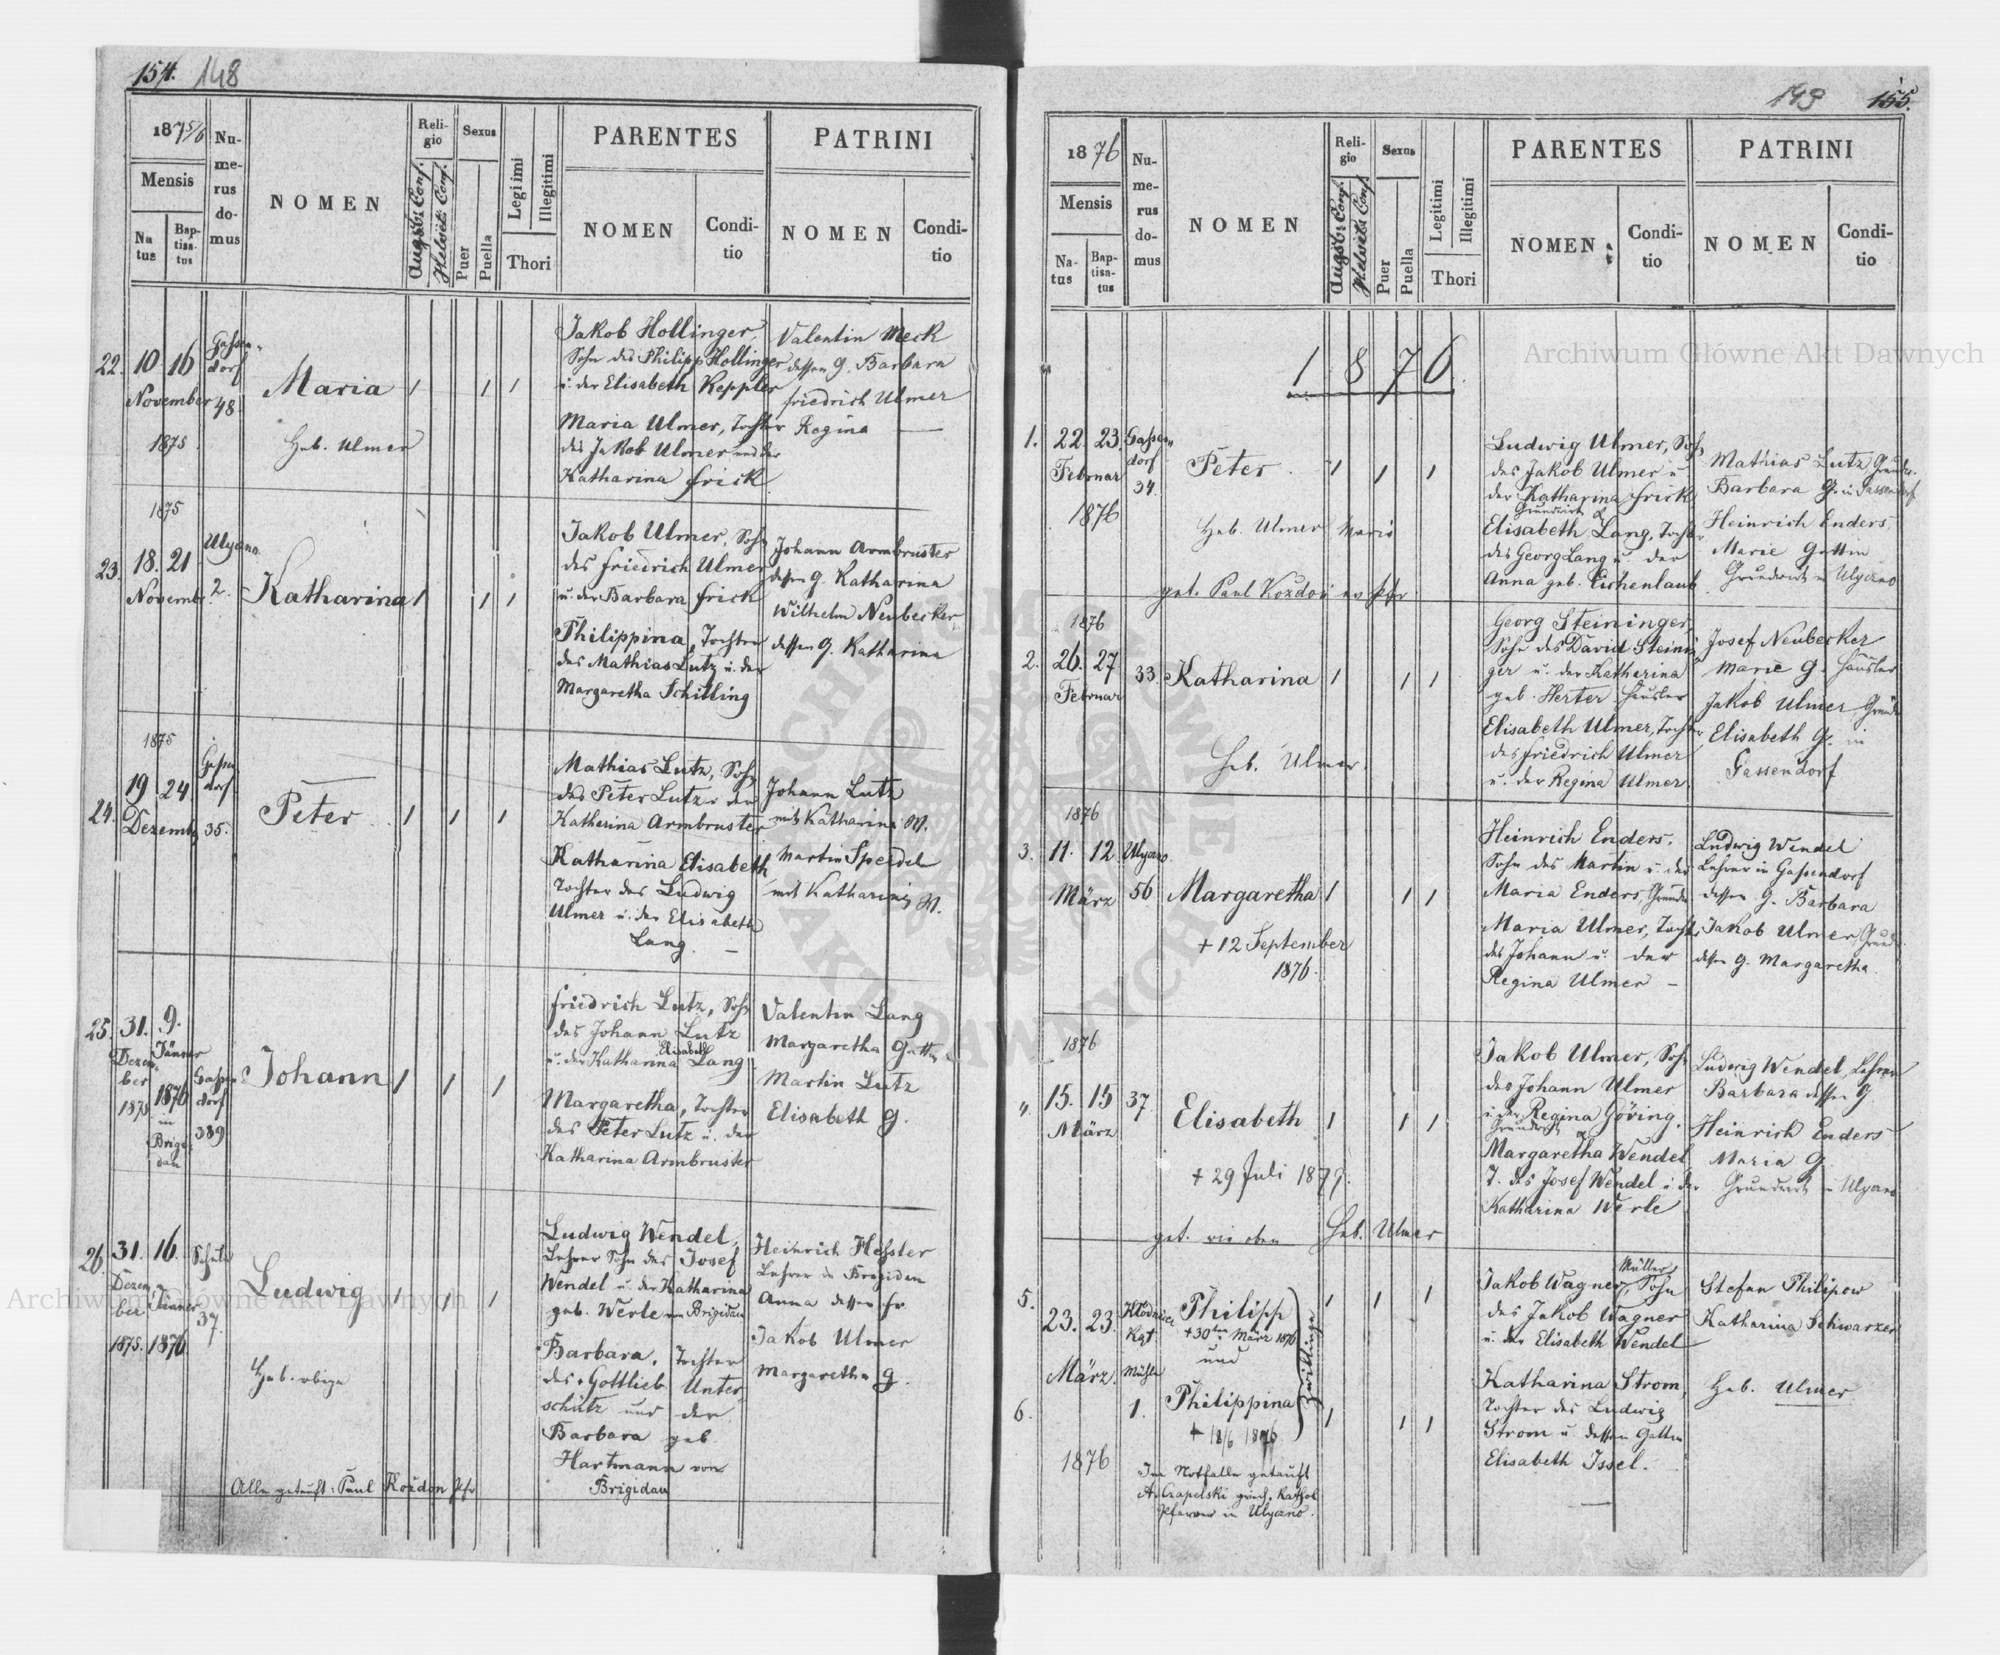 154. 148
1875/6
Mensis
Na
tus
Bap-
tisa-
tus
Nu-
me-
rus
do-
mus
NOMEN
Reli-
gio
Augsb: Conf.
Helvit: Conf.
Sexus
Puer
Puella
Legi imi
Illegitimi
Thori
PARENTES
NOMEN
Condi-
tio
PATRINI
NOMEN
Condi-
tio
22. 10 16
November
1875
Gassen-
dorf
48.
Maria
Heb. Ulmer
Jakob Hollinger,
Sohn des Philipp Hollinger
u. der Elisabeth Keppler
Maria Ulmer, Tochter
des Jakob Ulmer und der
Katharina Frick
Valentin Meck
dessen G. Barbara
Friedrich Ulmer
Regina —
1875
23. 18. 21
Novemb.
Ulyczno
2.
Katharina
Jakob Ulmer, Sohn
des Friedrich Ulmer
u. der Barbara Frick
Philippina, Tochter
des Mathias Lutz u. der
Margaretha Schilling
Johann Armbruster
dessen G. Katharina
Wilhelm Neubecker,
dessen G. Katharina
1875
24. 19 24
Dezemb.
Gassen
dorf
35.
Peter
Mathias Lutz, Sohn
des Peter Lutz u der
Katharina Armbruster
Katharina Elisabeth
Tochter des Ludwig
Ulmer u. der Elisabeth
Lang. —
Johann Lutz
mit Katharina W.
Martin Speidel
mit Katharina W.
25. 31. 9.
Dezem-
ber
1875
Jänner
1876
in
Brigi-
dau
Gassen-
dorf
389
Johann
Friedrich Lutz, Sohn
des Johann Lutz
u. der Katharina Elisabeth Lang
Margaretha, Tochter
des Peter Lutz u. der
Katharina Armbruster
Valentin Lang
Margaretha Gattin
Martin Lutz
Elisabeth G.
26. 31. 16.
Dezem
ber
1875.
Jänner
1876
Schule
37.
Ludwig
Heb. obige
Ludwig Wendel,
Lehrer Sohn des Josef
Wendel u. der Katharina
geb. Werle von Brigidau
Barbara, Tochter
des Gottlieb Unter
schütz und der
Barbara geb.
Hartmann von
Brigidau
Heinrich Hessler
Lehrer in Brigidau
Anna dessen Fr.
Jakob Ulmer
Margaretha G.
Alle getauft: Paul Kozdon Pfr
149 155.
1876
Mensis
Na-
tus
Bap-
tisa-
tus
Nu-
me-
rus
do-
mus
NOMEN
Reli-
gio
Augsb: Conf.
Helvit: Conf.
Sexus
Puer
Puella
Legitimi
Illegitimi
Thori
PARENTES
NOMEN
Condi-
tio
PATRINI
NOMEN
Condi-
tio
1876
1. 22. 23.
Februar
1876
Gassen-
dorf
34.
Peter
Heb. Ulmer Marie
get. Paul Kozdon ev Pfr
Ludwig Ulmer, Sohn
des Jakob Ulmer u
der Katharina Frick
Grundwirt &
Elisabeth Lang, Tochter
des Georg Lang u. der
Anna geb. Eichenlaub
Mathias Lutz Grundw.
Barbara G. in Gassendorf
Heinrich Enders,
Marie Gattin
Grundwirt in Ulyczno
1876
2. 26. 27
Februar
33.
Katharina
Heb. Ulmer.
Georg Steininger,
Sohn des David Steinin
ger u. der Katharina
geb. Herter Häusler
Elisabeth Ulmer, Tochter
des Friedrich Ulmer
u. der Regina Ulmer
Josef Neubecker
Marie G. Häusler
Jakob Ulmer Grundw
Elisabeth G. in
Gassendorf
1876
3. 11. 12
März
Ulyczno
56
Margaretha
+ 12 September
1876.
Heinrich Enders,
Sohn des Martin u. der
Maria Enders, Grundw
Maria Ulmer, Tocht.
des Johann u. der
Regina Ulmer —
Ludwig Wendel
Lehrer in Gassendorf
dessen G. Barbara
Jakob Ulmer, Grundw.
dessen G. Margaretha.
1876
" 15. 15
März
37
Elisabeth
+ 29 Juli 1879.
get. wie oben Heb. Ulmer
Jakob Ulmer, Sohn
des Johann Ulmer
u. der Regina Göring.
Grundwirt &
Margaretha Wendel
T. des Josef Wendel u. der
Katharina Werle
Ludwig Wendel, Lehrer
Barbara dessen G.
Heinrich Enders
Maria G.
Grundwirt in Ulyczno
5. 23. 23.
März.
6.
1876
Mühle
1.
Philipp
+ 30ten März 1876
und
Philippina
+ 18/6 1876
Zwillinge
Im Notfalle getauft
A. Czapelski griech. Kathol
Pfarrer in Ulyczno.
Jakob Wagner, Müller, Sohn
des Jakob Wagner
u. der Elisabeth Wendel
Katharina Strom,
Tochter des Ludwig
Strom u. dessen Gattin
Elisabeth Issel.
Stefan Philipow
Katharina Schwarzer
Heb. Ulmer
Archiwum Główne Akt Dawnych
Archiwum Główne Akt Dawnych